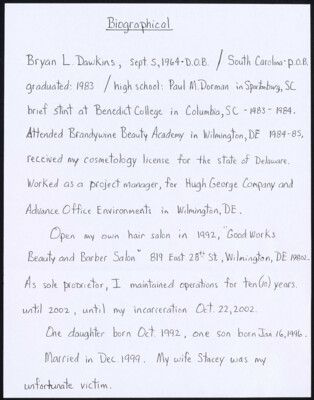 Biographical
Bryan L. Dawkins, Sept. 5, 1964-D.O.B. / South Carolina-p.o.B.
graduated: 1983 / high school: Paul M. Dorman in Spartanburg, SC
brief stint at Benedict College in Columbia, SC - 1983 - 1984.
Attended Brandywine Beauty Academy in Wilmington, DE 1984-85,
received my cosmetology license for the state of Delaware.
Worked as a project manager, for Hugh George Company and
Advance Office Environments in Wilmington, DE.
Open my own hair salon in 1992, "Good Works
Beauty and Barber Salon" 819 East 28th St., Wilmington, DE 19802.
As sole proprietor, I maintained operations for ten(10) years.
until 2002, until my incarceration Oct. 22, 2002.
One daughter born Oct. 1992, one son born Jan 16, 1996.
Married in Dec. 1999. My wife Stacey was my
unfortunate victim.